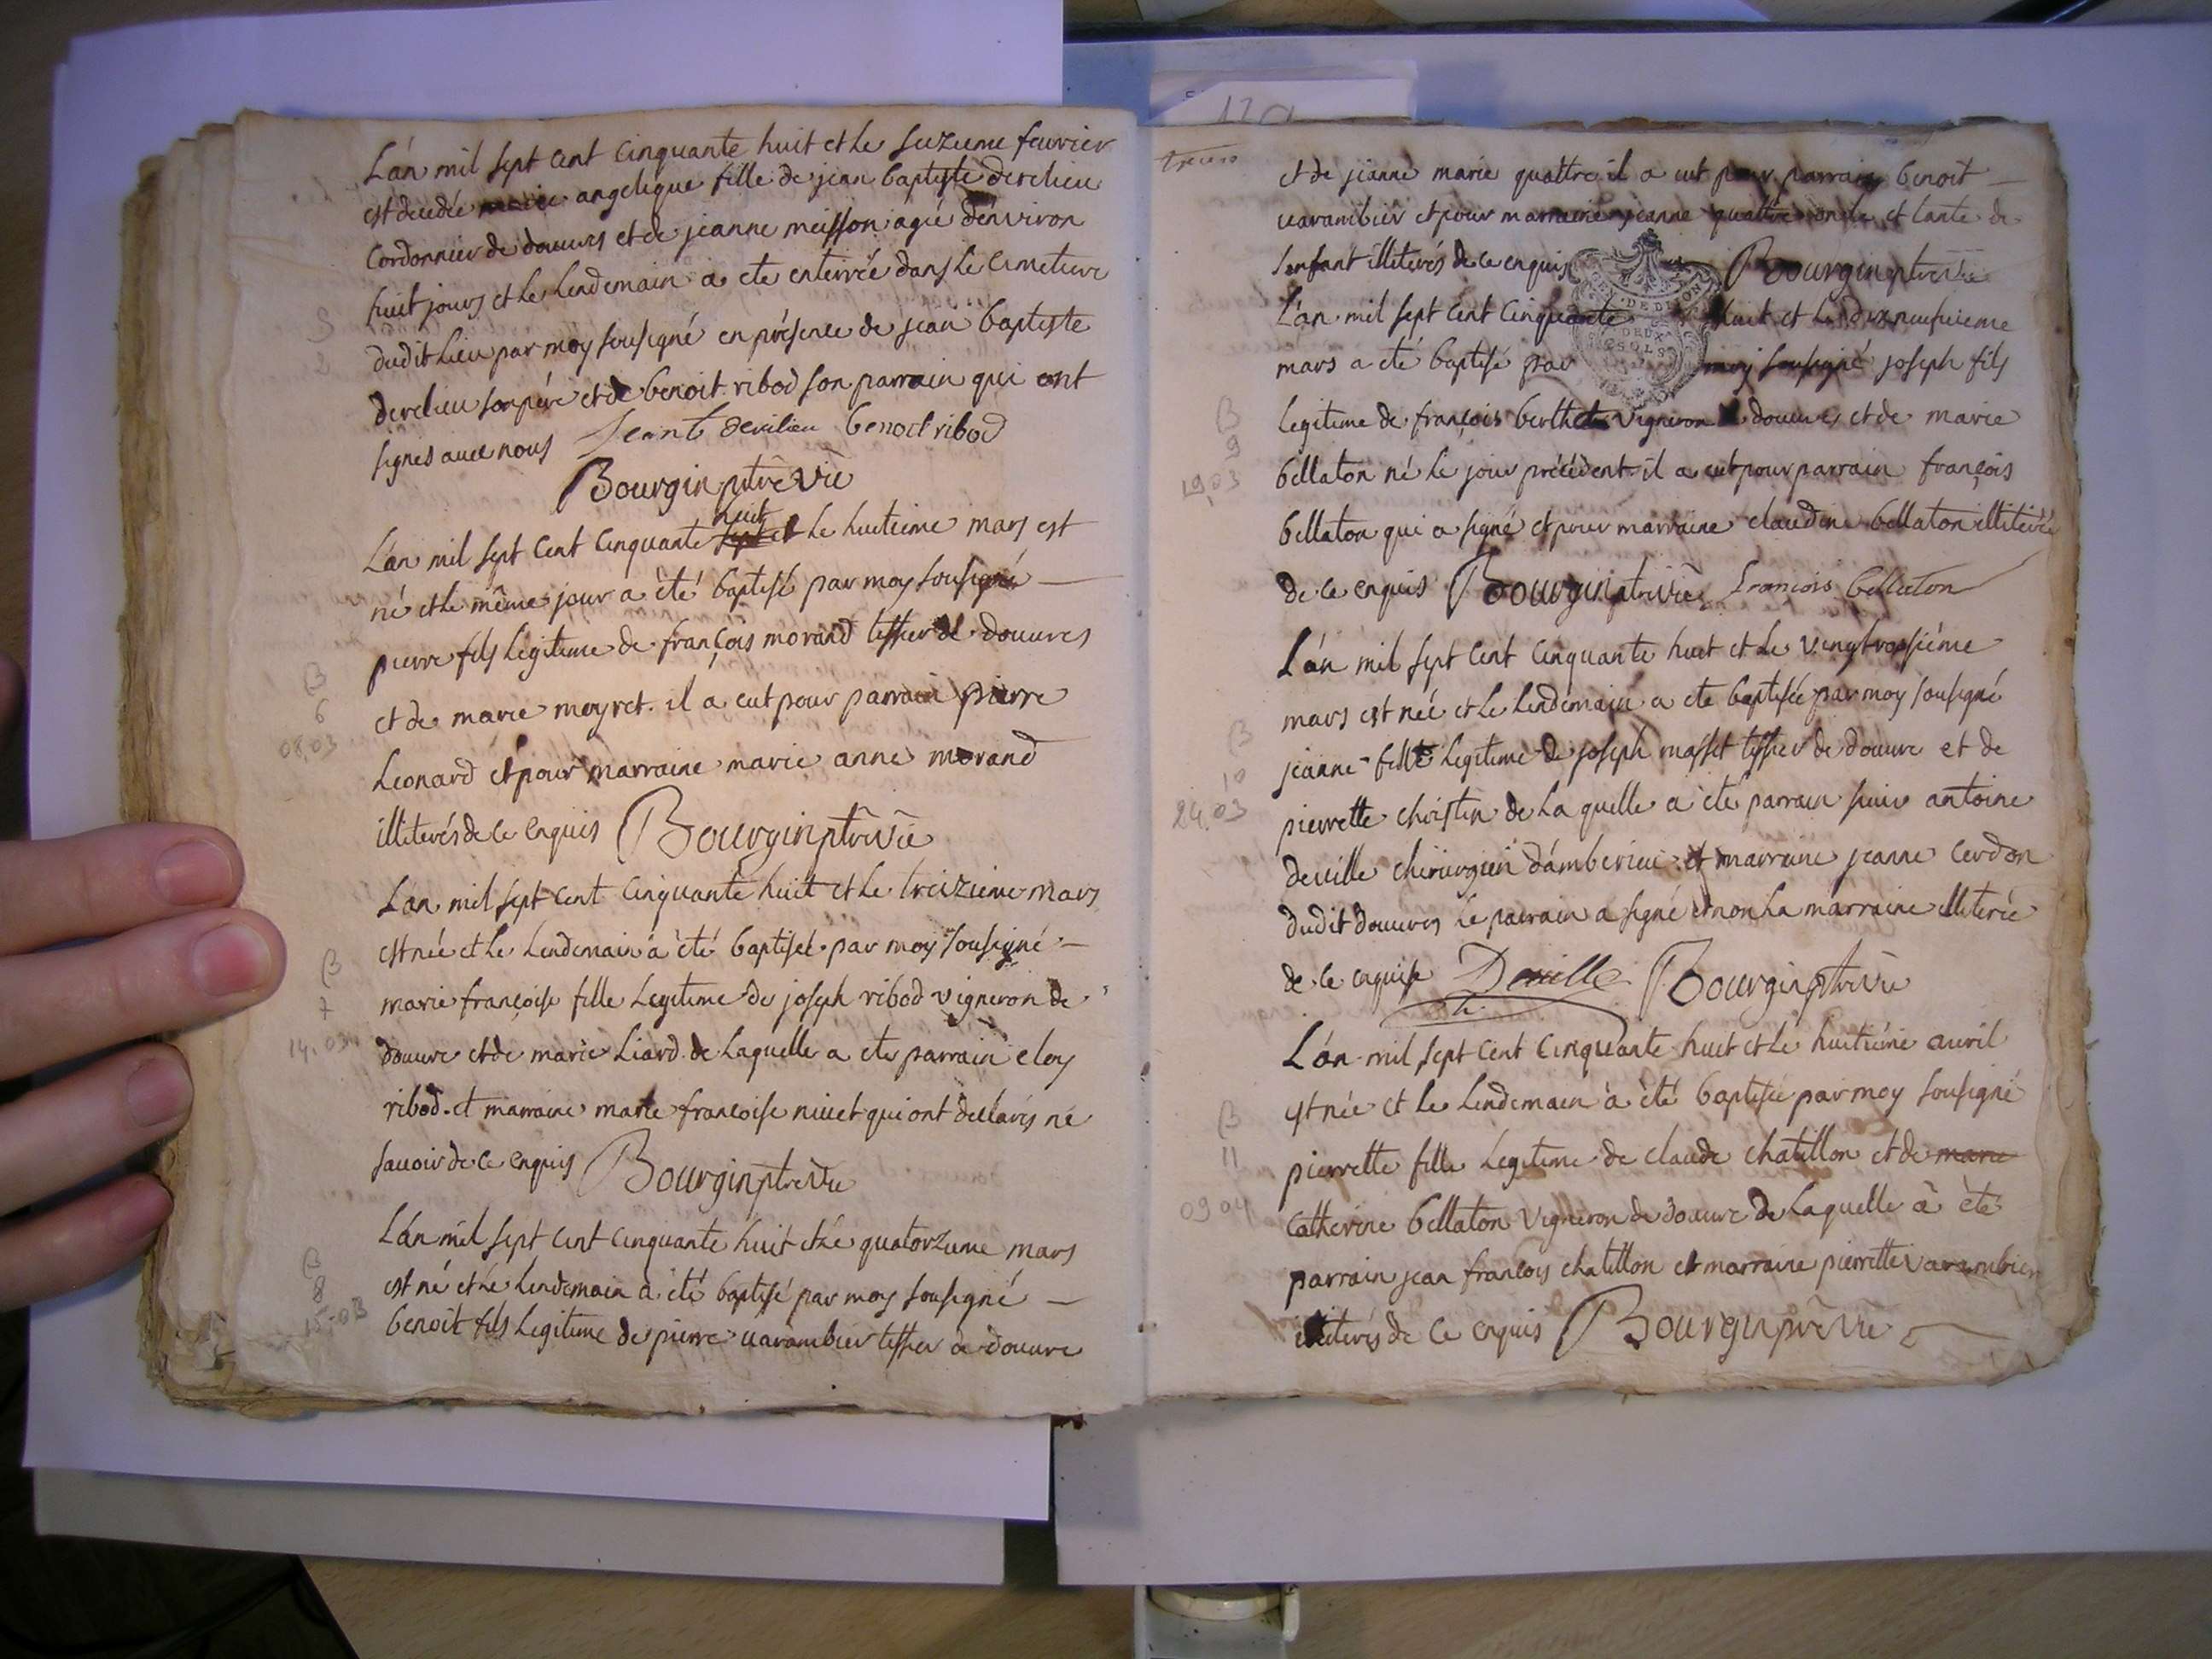 L'an mil sept cent cinquante huit et le seizieme feuvrier
est decedée marie angelique fille de jean baptiste derelieu
cordonnier de douures et de jeanne meisson agée d'environ
huit jours et le lendemain a ete enterrée dans le cimetiere
dudit lieu par moy sousigné en présence de jean baptiste
derelieu son père et de benoit ribod son parrain qui ont
signés auec nous Jean b derelieu benoit ribod
Bourgin ptre vic
huit
L'an mil sept cent cinquante sept et le huitieme mars est
né et le même jour a èté baptisé par moy sousigné
pierre fils legitime de françois morand tissier de douures
et de marie meyret. il a eut pour parrain pierre
Leonard et pour marraine marie anne morand
illiterés de ce enquis Bourgin ptre vic
L'an mil sept cent cinquante huit et le treizieme mars
est née et le lendemain à èté baptisée par moy sousigné
marie françoise fille legitime de joseph ribod vigneron de
douure et de marie Liard de laquelle a ete parrain eloy
ribod et marraine marie francoise niuet qui ont declarés ne
sauoir de ce enquis Bourgin ptre vic
L'an mil sept cent cinquante huit et le quatorzieme mars
est né et le lendemain à èté baptisé par moy sousigné
benoit fils legitime de pierre uarambier tissier à douure
B
6
08.03
B
7
14.03
B
8
15.03
et de jeanne marie quattre il a eut pour parrain benoit
uarambier et pour marraine jeanne quattre oncle et tante de
l'enfant illiterés de ce enquis Bourgin ptre vic
L'an mil sept cent cinquante huit et le dixneufuieme
mars a eté baptisé par moy sousigné joseph fils
legitime de françois berthet vigneron de douures et de marie
bellaton né le jour précédent il a eut pour parrain françois
bellaton qui a signé et pour marraine claudine bellaton illiterée
de ce enquis Bourgin ptre vic francois bellaton
L'an mil sept cent cinquante huit et le vingtroisiéme
mars est née et le lendemain a ete baptisée par moy sousigné
jeanne fille legitime de joseph masset tissier de douure et de
pierrette christin de la quelle a èté parrain sieur antoine
deuille chirurgien d'amberieu et marraine jeanne cerdon
dudit douures le parrain a signé et non la marraine illiterée
de ce enquise Deuille Bourgin ptre vic
L'an mil sept cent cinquante huit et le huitiéme auril
est née et le lendemain à èté baptisée par moy sousigné
pierrette fille legitime de claude chatillon et de marie
catherine bellaton vigneron de douure de laquelle à èté
parrain jean françois chatillon et marraine pierrette varambier
illiterés de ce enquis Bourgin ptre vic
DEUX
SOLS
B
9
19.03
B
10
24.03
B
11
09 04